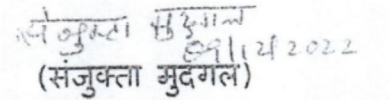 संजुक्ता मुदगल
2022
(संजुक्ता मुदगल)